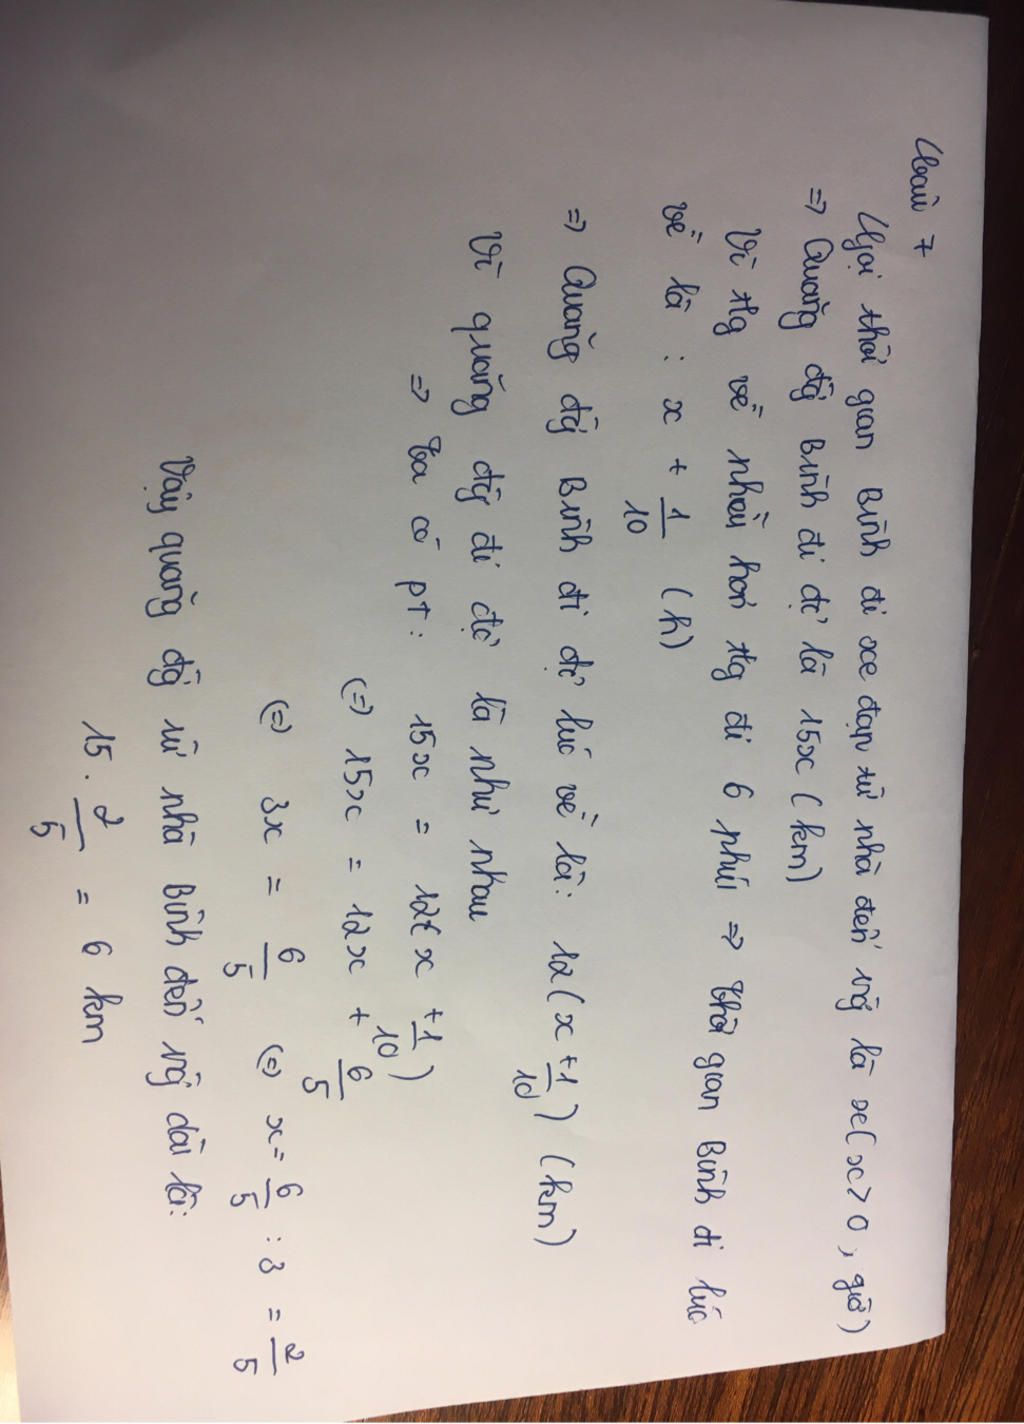 Câu 7
Gọi thời gian Bình đi xe đạp từ nhà đến trg là x (x > 0, giờ)
=> Quãng đg Bình đi đc là 15x (km)
Vì tg về nhiều hơn tg đi 6 phút => thời gian Bình đi lúc
về là : x + 1/10 (h)
=> Quãng đg Bình đi đc lúc về là: 12(x + 1/10) (km)
Vì quãng đg đi đc là như nhau
=> ta có pt: 15x = 12(x + 1/10)
(=) 15x = 12x + 6/5
(=) 3x = 6/5 (=) x = 6/5 : 3 = 2/5
Vậy quãng đg từ nhà Bình đến trg dài là:
15 . 2/5 = 6 km